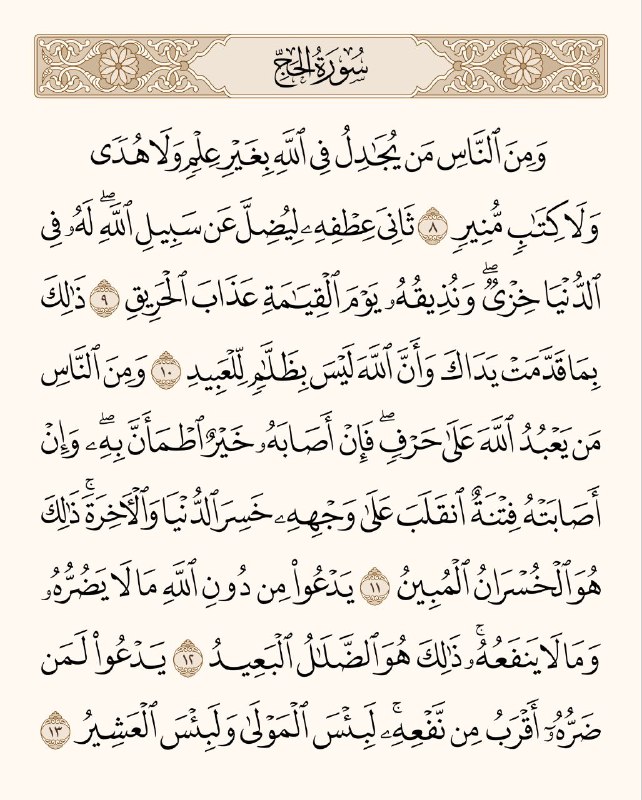 سُورَةُ الحَجِّ
وَمِنَ ٱلنَّاسِ مَن يُجَٰدِلُ فِى ٱللَّهِ بِغَيْرِ عِلْمٍ وَلَا هُدًى
وَلَا كِتَٰبٍ مُّنِيرٍ ٨ ثَانِىَ عِطْفِهِۦ لِيُضِلَّ عَن سَبِيلِ ٱللَّهِۖ لَهُۥ فِى
ٱلدُّنْيَا خِزْىٌۖ وَنُذِيقُهُۥ يَوْمَ ٱلْقِيَٰمَةِ عَذَابَ ٱلْحَرِيقِ ٩ ذَٰلِكَ
بِمَا قَدَّمَتْ يَدَاكَ وَأَنَّ ٱللَّهَ لَيْسَ بِظَلَّٰمٍ لِّلْعَبِيدِ ١٠ وَمِنَ ٱلنَّاسِ
مَن يَعْبُدُ ٱللَّهَ عَلَىٰ حَرْفٍۖ فَإِنْ أَصَابَهُۥ خَيْرٌ ٱطْمَأَنَّ بِهِۦۖ وَإِنْ
أَصَابَتْهُ فِتْنَةٌ ٱنقَلَبَ عَلَىٰ وَجْهِهِۦ خَسِرَ ٱلدُّنْيَا وَٱلْأَخِرَةَۚ ذَٰلِكَ
هُوَ ٱلْخُسْرَانُ ٱلْمُبِينُ ١١ يَدْعُوا۟ مِن دُونِ ٱللَّهِ مَا لَا يَضُرُّهُۥ
وَمَا لَا يَنفَعُهُۥۚ ذَٰلِكَ هُوَ ٱلضَّلَٰلُ ٱلْبَعِيدُ ١٢ يَدْعُوا۟ لَمَن
ضَرُّهُۥٓ أَقْرَبُ مِن نَّفْعِهِۦۚ لَبِئْسَ ٱلْمَوْلَىٰ وَلَبِئْسَ ٱلْعَشِيرُ ١٣